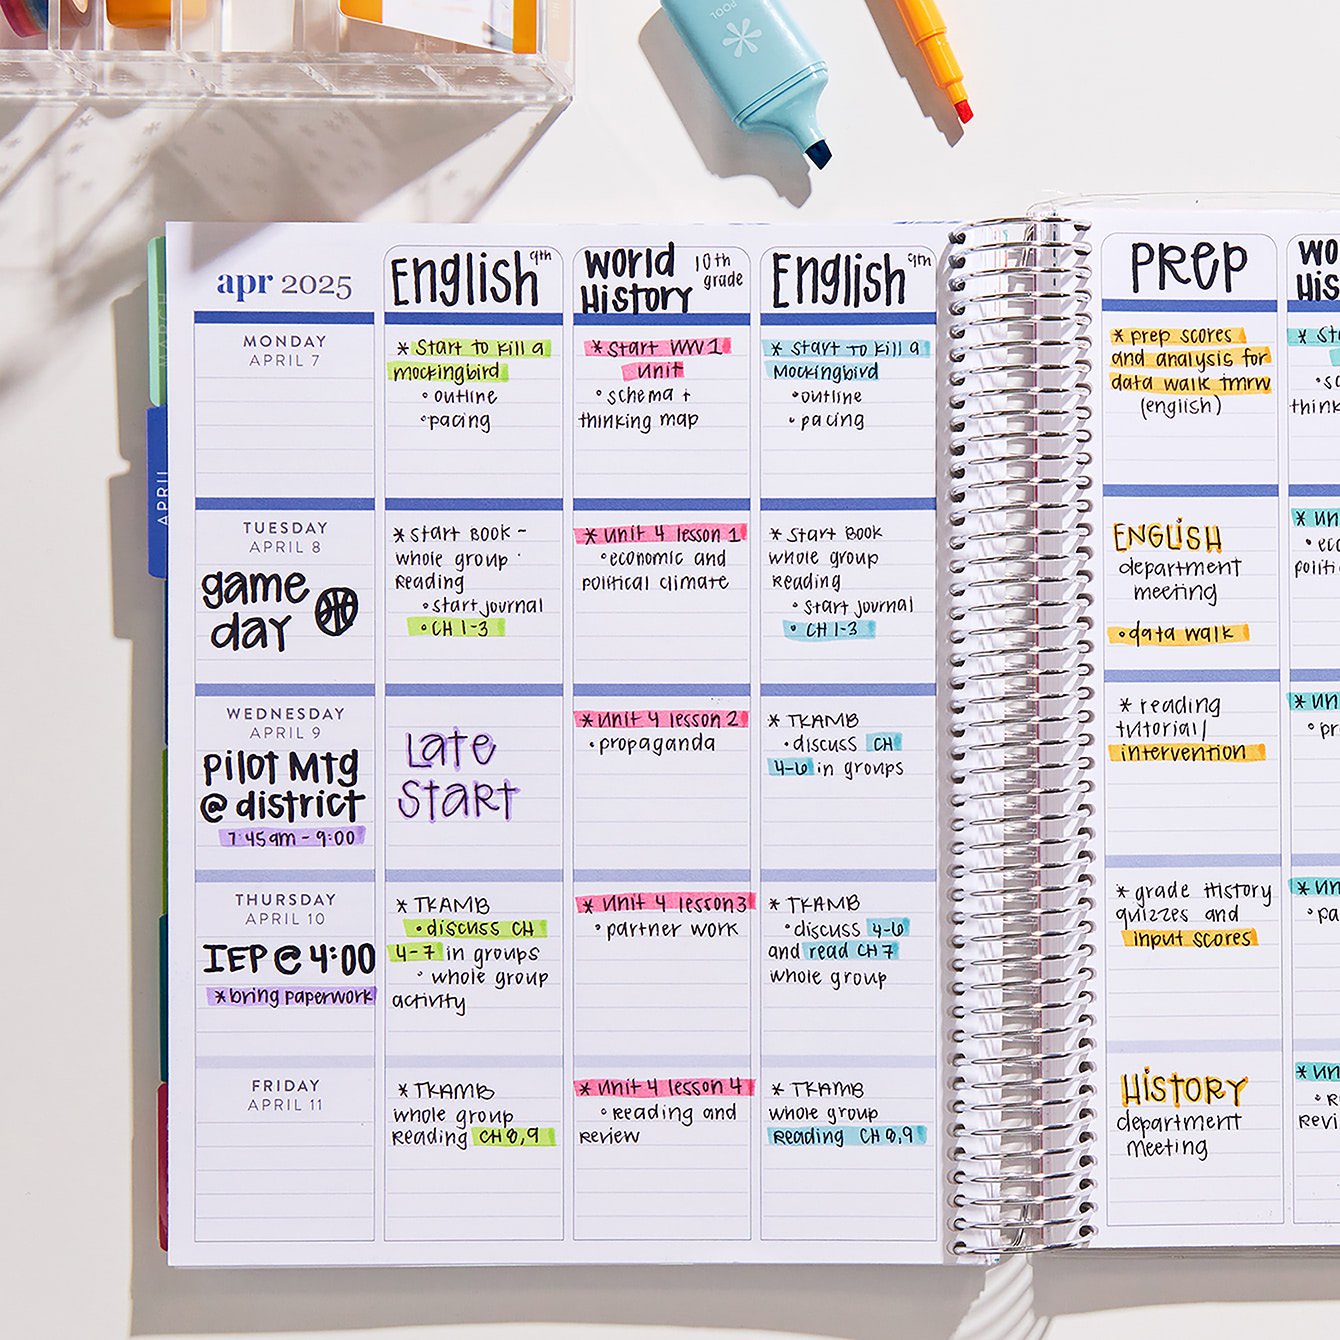 POOL
MARCH
APRIL
apr 2025
English 9th
World History 10th grade
English 9th
PREP
WO
HIS
MONDAY
APRIL 7
* Start To Kill a
mockingbird
• outline
• pacing
* Start WW1
unit
• schema +
thinking map
* Start To Kill a
Mockingbird
• outline
• pacing
* prep scores
and analysis for
data walk tmrw
(english)
TUESDAY
APRIL 8
game
day
* Start Book -
whole group
Reading
• start journal
• CH 1-3
* Unit 4 lesson 1
• economic and
political climate
* Start Book
whole group
Reading
• Start journal
• CH 1-3
ENGLISH
department
meeting
• data walk
WEDNESDAY
APRIL 9
Pilot Mtg
@ district
7:45am - 9:00
Late
Start
* unit 4 lesson 2
• propaganda
* TKAMB
• discuss CH
4-6 in groups
* reading
tutorial/
intervention
THURSDAY
APRIL 10
IEP @ 4:00
* bring paperwork
* TKAMB
• discuss CH
4-7 in groups
• whole group
activity
* Unit 4 lesson 3
• partner work
* TKAMB
• discuss 4-6
and read CH 7
whole group
* grade History
quizzes and
input scores
FRIDAY
APRIL 11
* TKAMB
whole group
Reading CH 8,9
* Unit 4 lesson 4
• Reading and
Review
* TKAMB
whole group
Reading CH 8,9
HISTORY
department
meeting